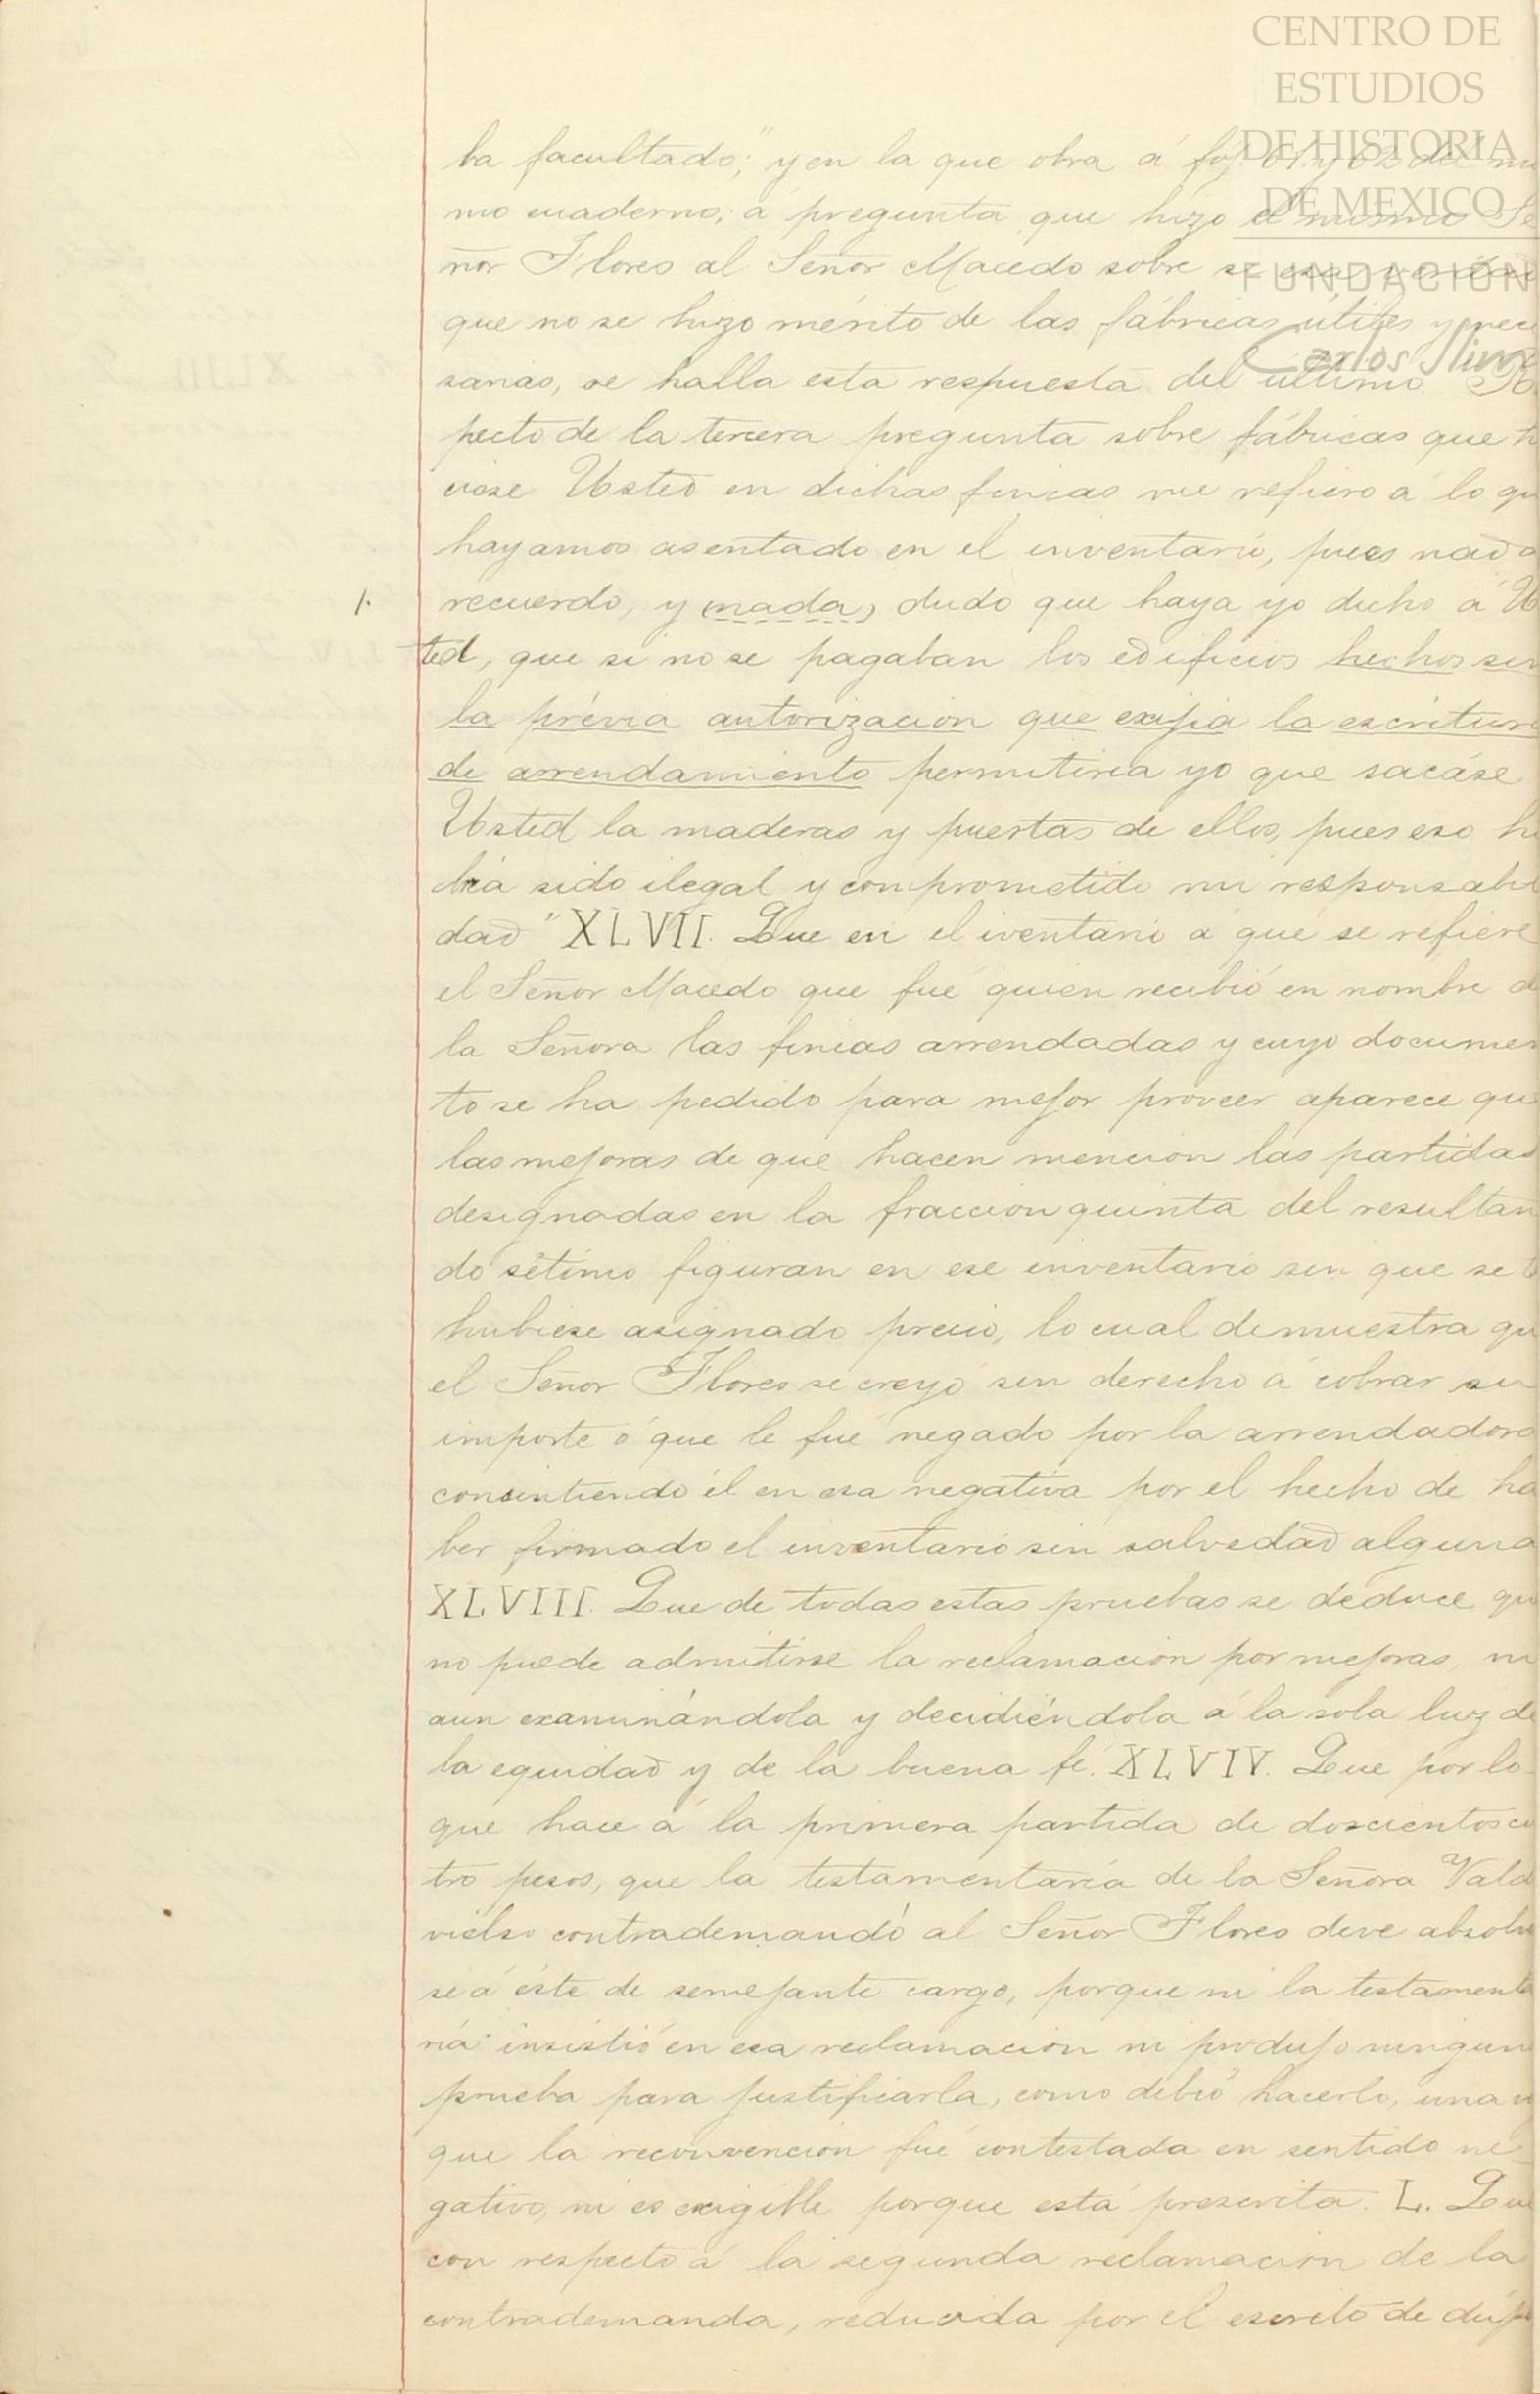 CENTRO DE
ESTUDIOS
DE HISTORIA
DE MEXICO
FUNDACIÓN
Carlos Slim
ba facultado;" y en la que obra á foj. 61 y 62 del mis
mo cuaderno, á pregunta que hizo el mismo Se
ñor Flores al Señor Macedo sobre si era verdad
que no se hizo mérito de las fábricas utiles y nece
sarias, se halla esta respuesta del último. Res
pecto de la tercera pregunta sobre fábricas que hi
ciese Usted en dichas fincas me refiero á lo qu
hayamos asentado en el inventario, pues nada
1. recuerdo, y (nada) dudo que haya yo dicho á Us
ted, que si no se pagaban los edificios hechos sin
la prévia autorizacion que exijia la escritura
de arrendamiento permitiria yo que sacáse
Usted la maderas y puertas de ellos, pues eso ha
bria sido ilegal y comprometido mi responsabili
dad" XLVII. Que en el iventario á que se refiere
el Señor Macedo que fué quien recibió en nombre d
la Señora las fincas arrendadas y cuyo documen
to se ha pedido para mejor proveer aparece qu
las mejoras de que hacen mencion las partidas
designadas en la fraccion quinta del resultan
do sétimo figuran en ese inventario sin que se l
hubiese asignado precio, lo cual demuestra qu
el Señor Flores se creyó sin derecho á cobrar su
importe ó que le fué negado por la arrendadora
consintiendo él en esa negativa por el hecho de ha
ber firmado el inventario sin salvedad alguna
XLVIII. Que de todas estas pruebas se deduce qu
no puede admitirse la reclamacion por mejoras, ni
aun examinándola y decidiéndola á la sola luz de
la equidad y de la buena fé. XLVIV. Que por lo
que hace á la primera partida de doscientos cu
tro pesos, que la testamentaría de la Señora Vald
vielso contrademandó al Señor Flores deve absolv
se á éste de semejante cargo, porque ni la testamenta
ría insistió en esa reclamacion ni produjo ningun
prueba para justificarla, como debió hacerlo, una v
que la reconvencion fué contestada en sentido ne
gativo, ni es exigible porque está prescrita. L. Que
con respecto á la segunda reclamacion de la
contrademanda, reducida por el escrito de dúp